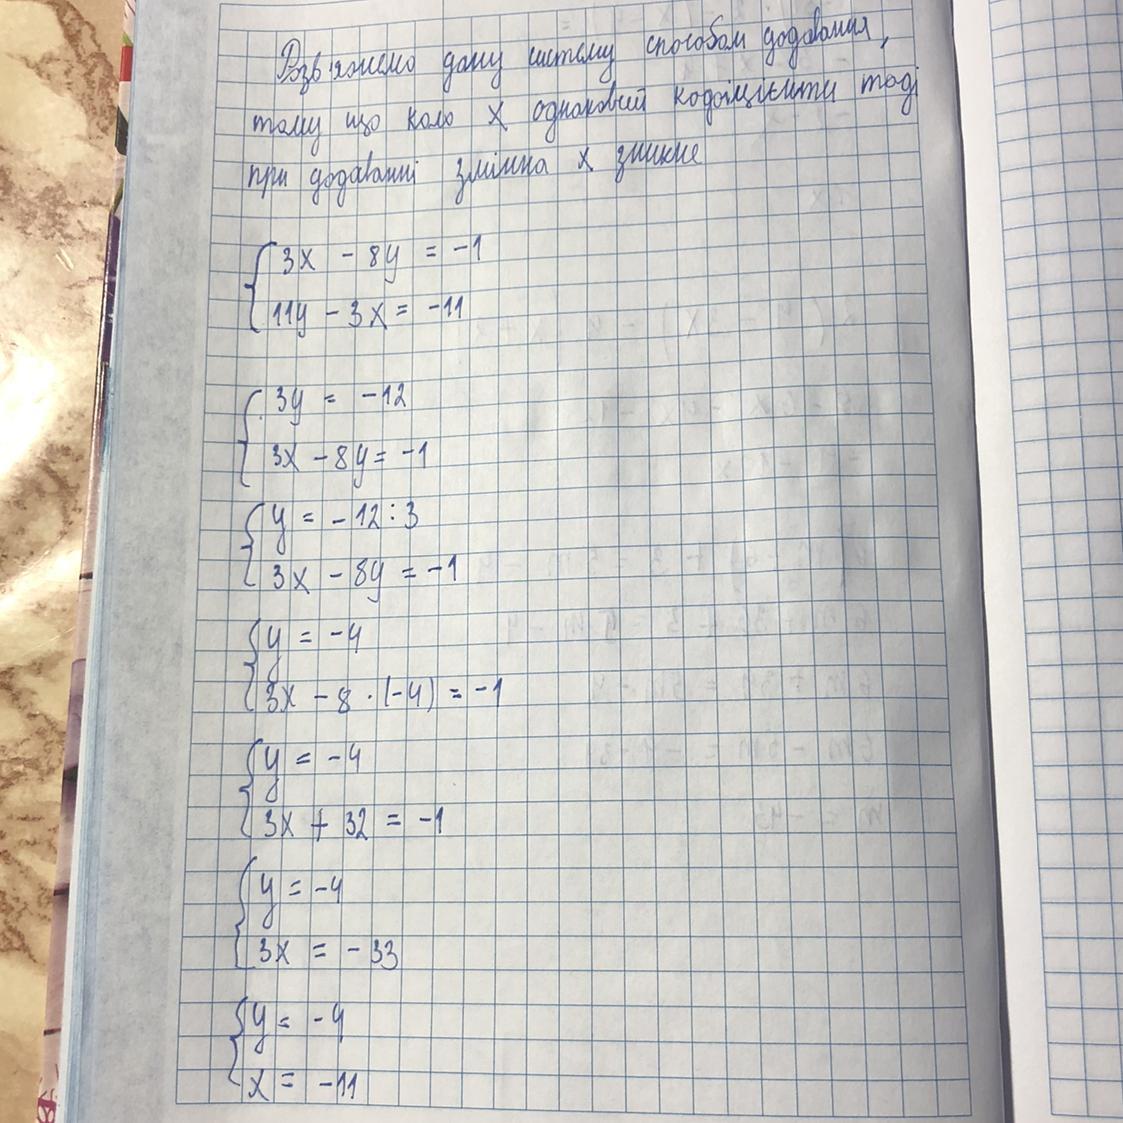 Розв'яжемо дану систему способом додавання,
тому що коло х однаковий коофіцієнти тоді
при додаванні змінна х зникне
3x - 8y = -1
11y - 3x = -11
3y = -12
3x - 8y = -1
y = -12 : 3
3x - 8y = -1
y = -4
3x - 8 · (-4) = -1
y = -4
3x + 32 = -1
y = -4
3x = -33
y = -4
x = -11